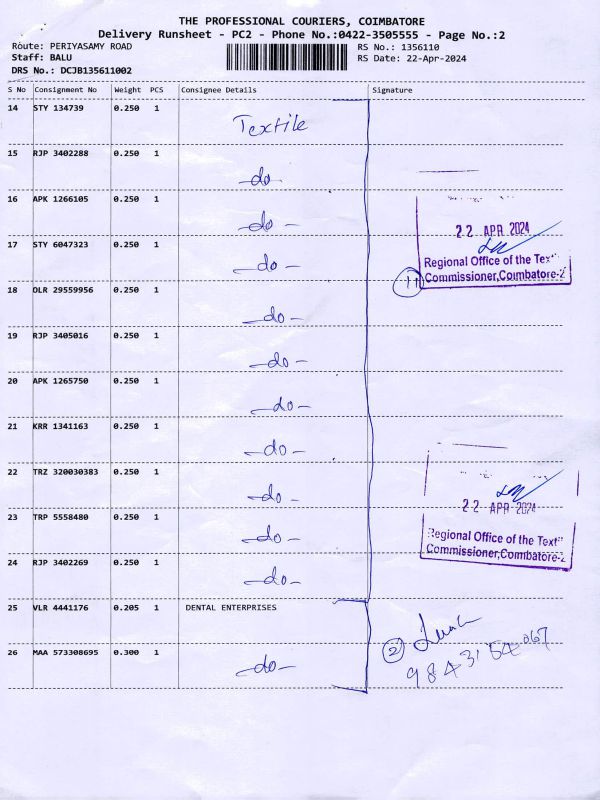 THE PROFESSIONAL COURIERS, COIMBATORE
Delivery Runsheet - PC2 - Phone No.:0422-3505555 - Page No.:2
Route: PERIYASAMY ROAD RS No.: 1356110
Staff: BALU RS Date: 22-Apr-2024
DRS No.: DCJB135611002
S No Consignment No Weight PCS Consignee Details Signature
14 STY 134739 0.250 1 Textile
15 RJP 3402288 0.250 1 -do-
16 APK 1266105 0.250 1 -do-
22 APR 2024
17 STY 6047323 0.250 1 -do-
Regional Office of the Text
Commissioner,Coimbatore-2
11
18 DLR 29559956 0.250 1 -do-
19 RJP 3405016 0.250 1 -do-
20 APK 1265750 0.250 1 -do-
21 KRR 1341163 0.250 1 -do-
22 TRZ 320030383 0.250 1 -do-
22 APR 2024
23 TRP 5558480 0.250 1 -do-
Regional Office of the Text
Commissioner,Coimbatore-2
24 RJP 3402269 0.250 1 -do-
25 VLR 4441176 0.205 1 DENTAL ENTERPRISES
26 MAA 573308695 0.300 1 -do-
2
9843154067